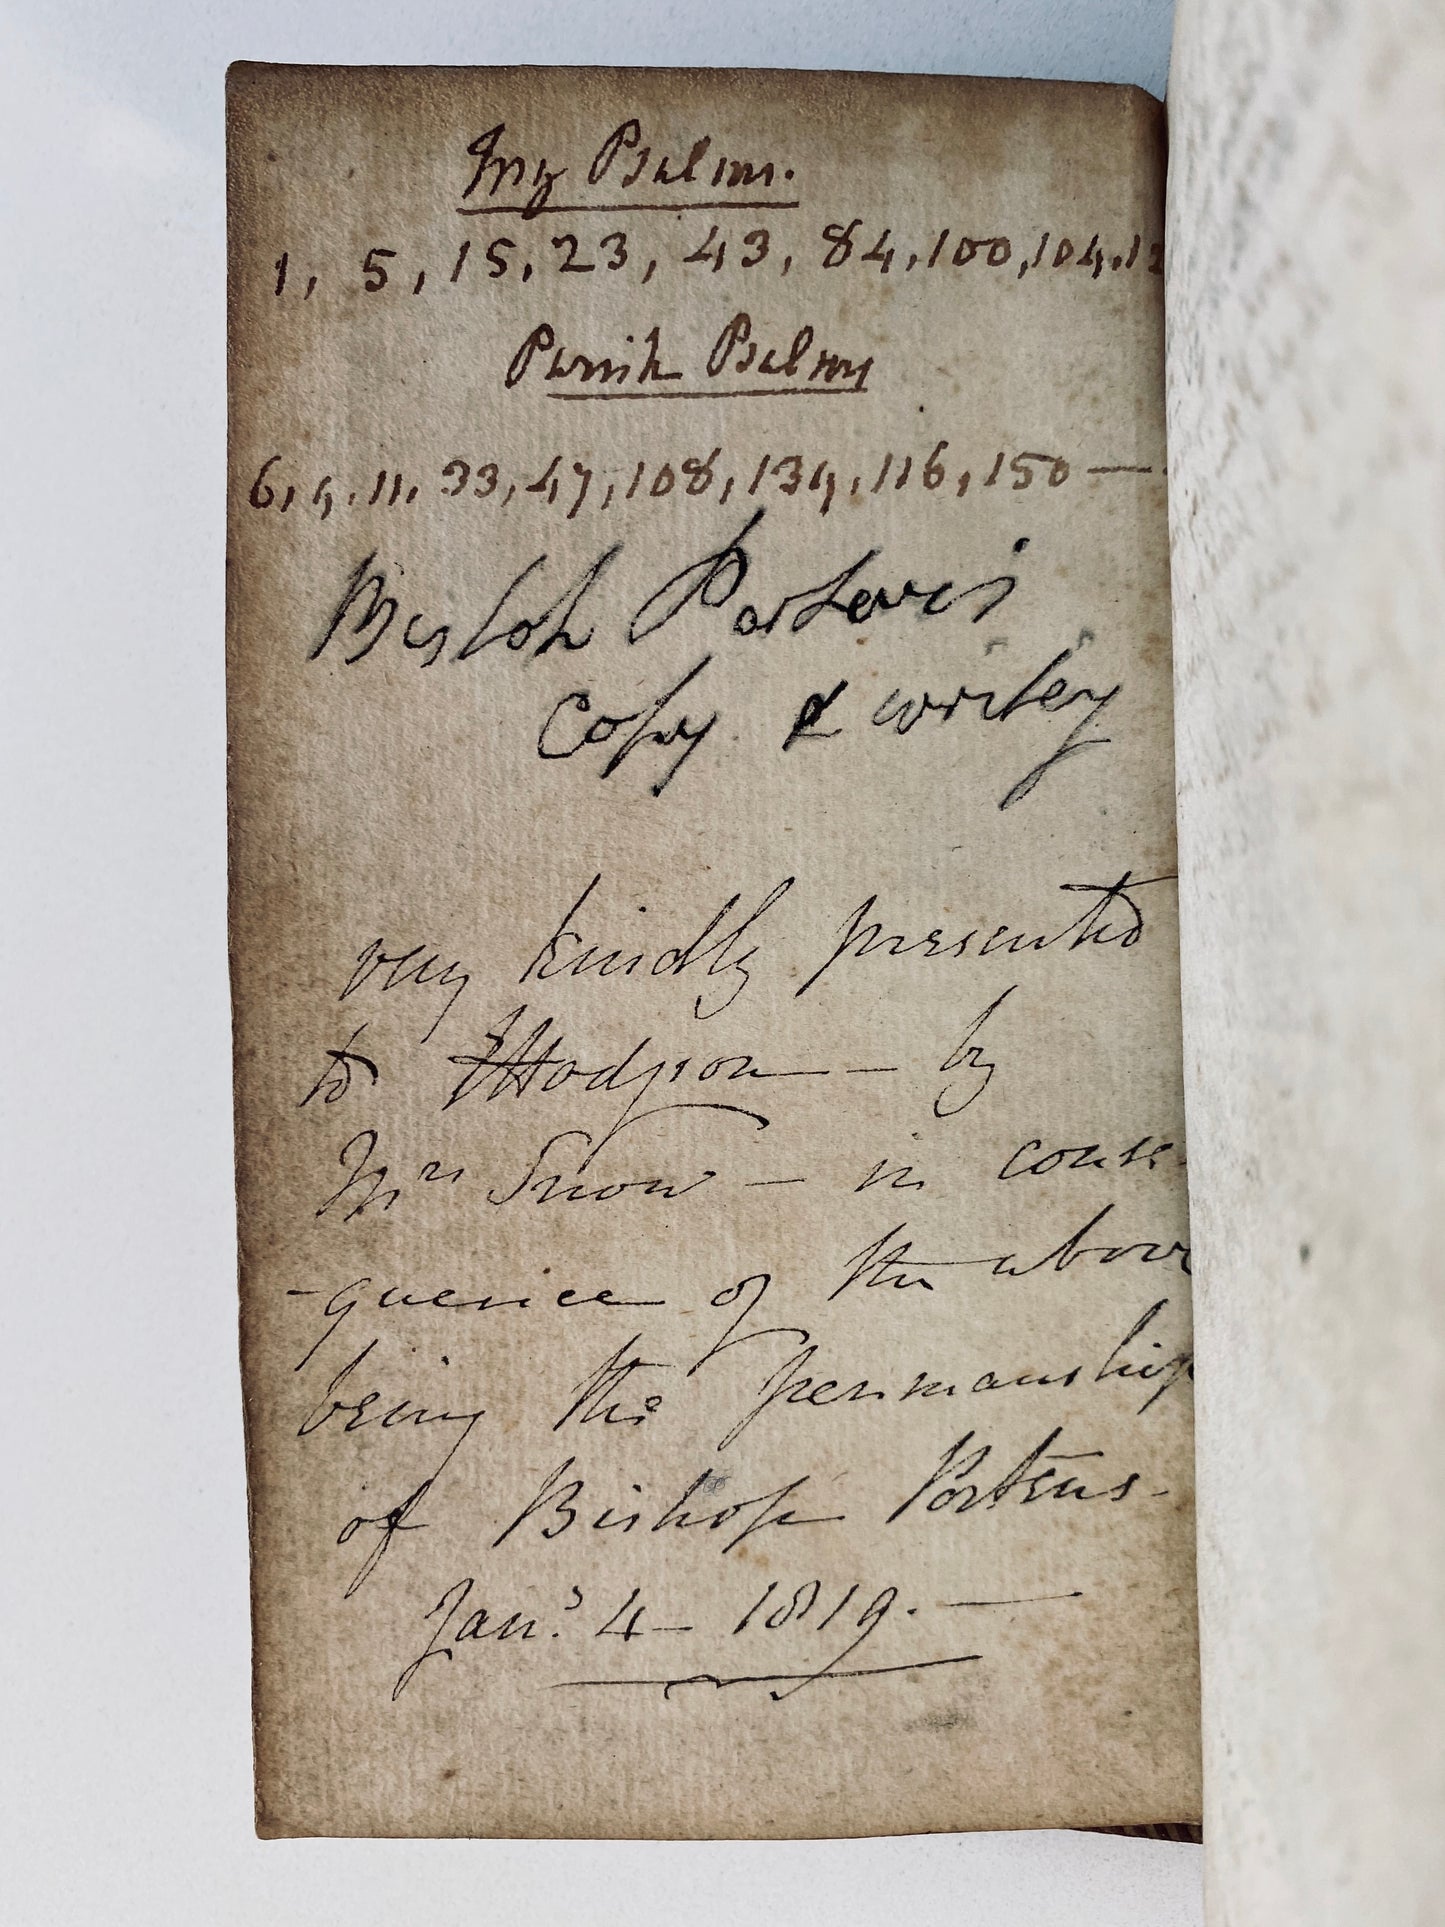 My Psalms.
1, 5, 15, 23, 43, 84, 100, 104, 12
Parish Psalms
6, 9, 11, 33, 47, 108, 139, 116, 150 —
Bishop Porteus's
Copy & writing
very kindly presented
to Hodgson — by
Mrs Snow — in conse-
-quence of the above
being the penmanship
of Bishop Porteus-
Jany. 4 - 1819. —